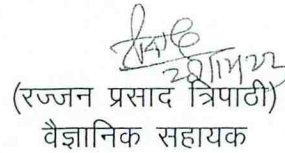 (रज्जन प्रसाद त्रिपाठी)
वैज्ञानिक सहायक